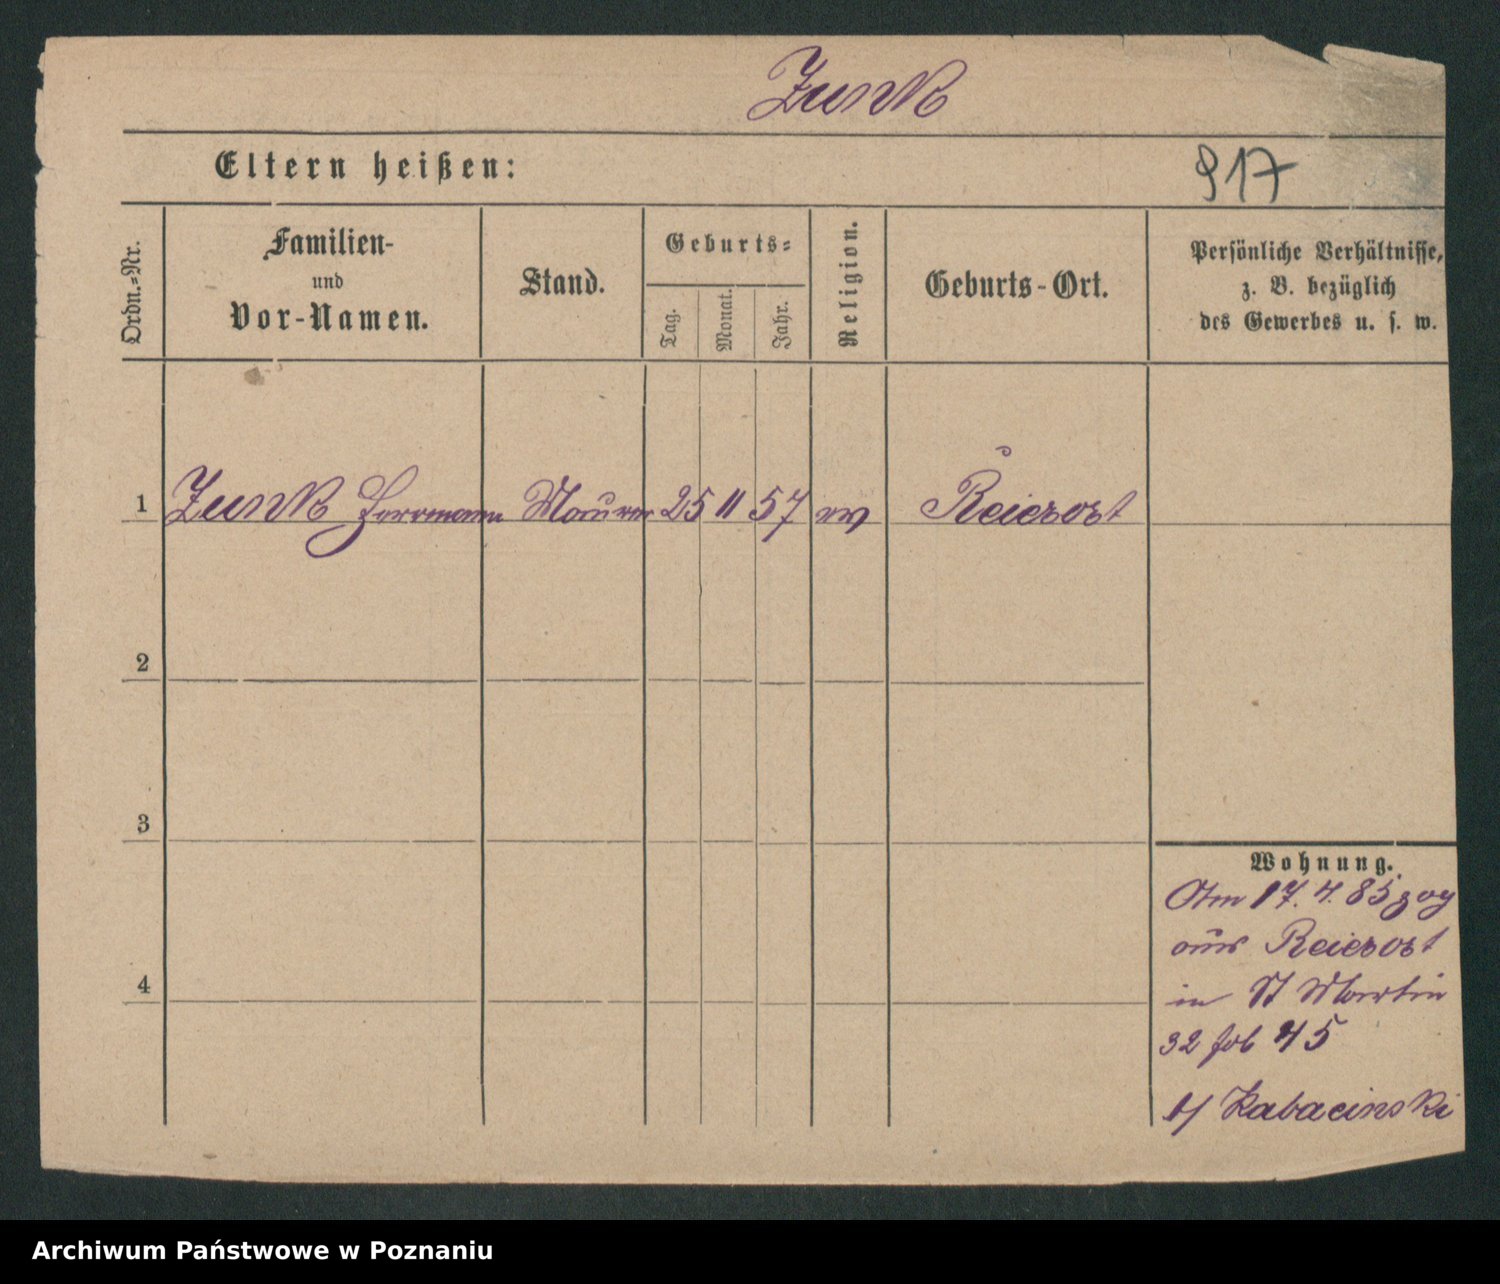 Zunk
Eltern heißen:
917
Ordn.=Nr.
Familien-
und
Vor-Namen.
Stand.
Geburts=
Tag.
Monat.
Jahr.
Religion.
Geburts-Ort.
Persönliche Verhältnisse,
z. B. bezüglich
des Gewerbes u. s. w.
1 Zunk Herrmann Maurer 25 11 57 ev
2
3
4
Wohnung.
Am 17. 4. 85 zog
aus
in St Martin
32
Kabacinski
Archiwum Państwowe w Poznaniu